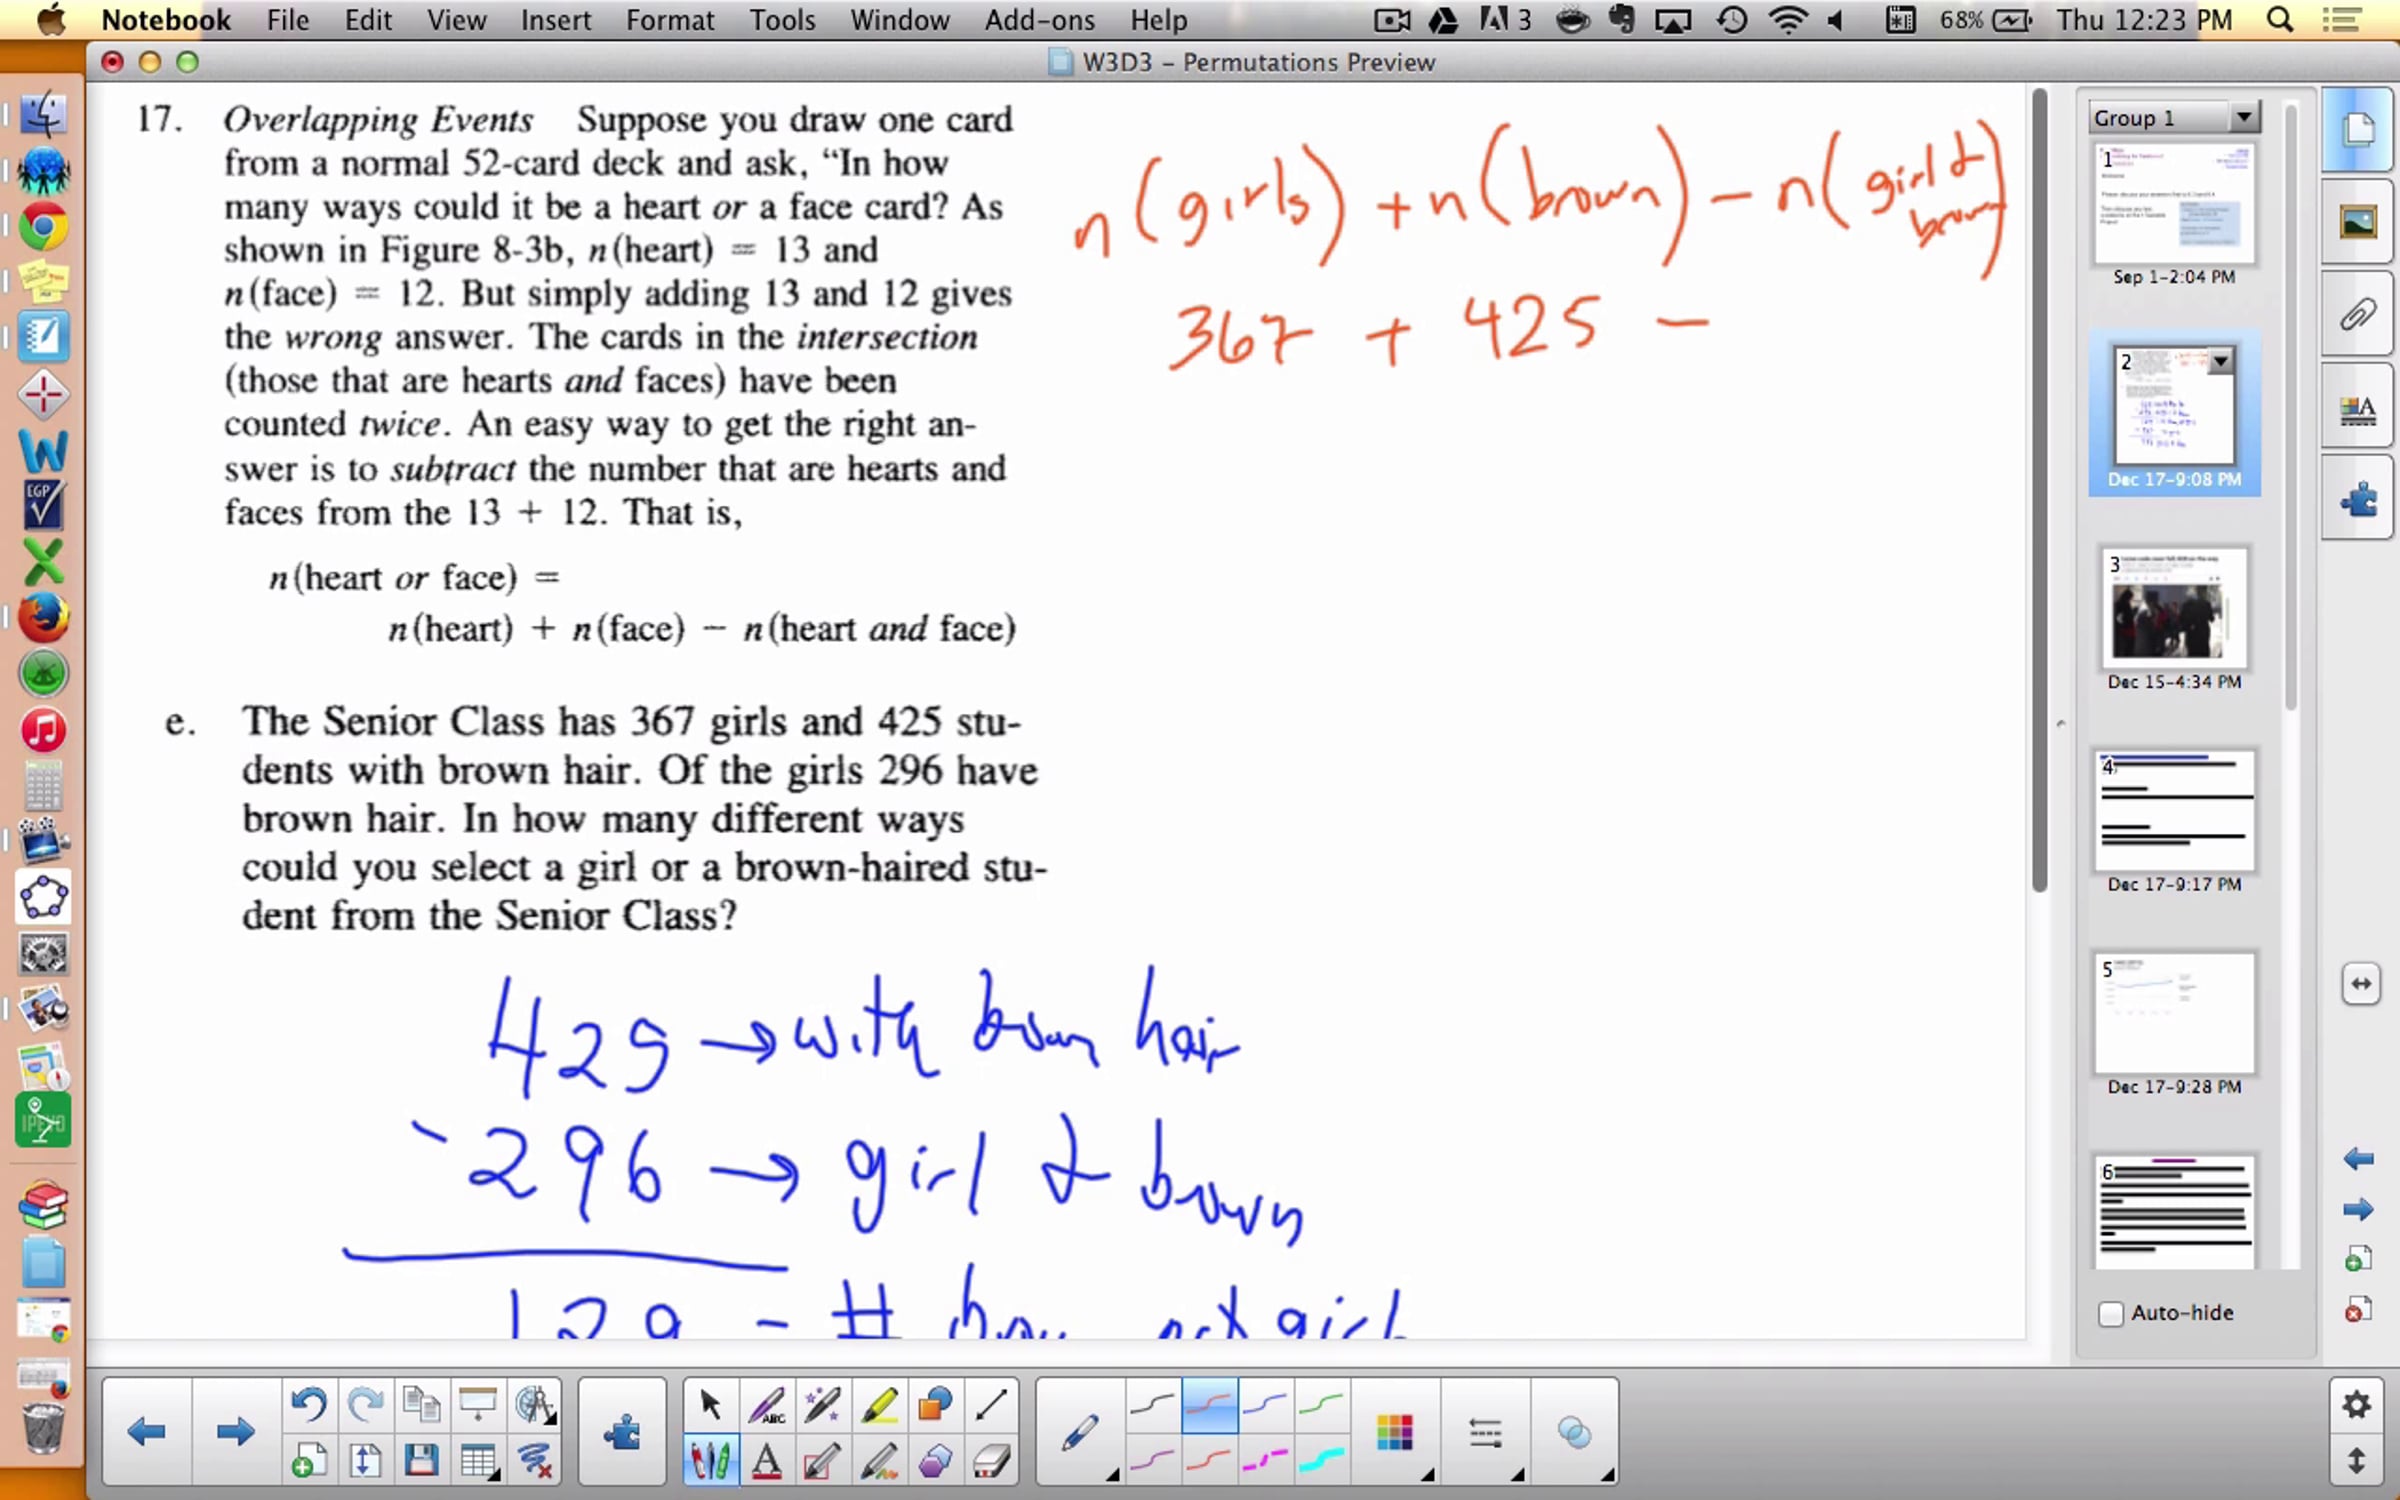 Notebook File Edit View Insert Format Tools Window Add-ons Help 3 68% Thu 12:23 PM
W3D3 – Permutations Preview
17. Overlapping Events Suppose you draw one card
from a normal 52-card deck and ask, “In how
many ways could it be a heart or a face card? As
shown in Figure 8-3b, n(heart) = 13 and
n(face) = 12. But simply adding 13 and 12 gives
the wrong answer. The cards in the intersection
(those that are hearts and faces) have been
counted twice. An easy way to get the right an-
swer is to subtract the number that are hearts and
faces from the 13 + 12. That is,
n(heart or face) =
n(heart) + n(face) − n(heart and face)
n(girls) + n(brown) − n(girl &
brown)
367 + 425 −
e. The Senior Class has 367 girls and 425 stu-
dents with brown hair. Of the girls 296 have
brown hair. In how many different ways
could you select a girl or a brown-haired stu-
dent from the Senior Class?
425 → with brown hair
- 296 → girl & brown
129 - # brown not girl
Group 1
1
Sep 1-2:04 PM
2
Dec 17-9:08 PM
3
Dec 15-4:34 PM
4
Dec 17-9:17 PM
5
Dec 17-9:28 PM
6
Auto-hide
EGP
IPEVO
ABC
A
A